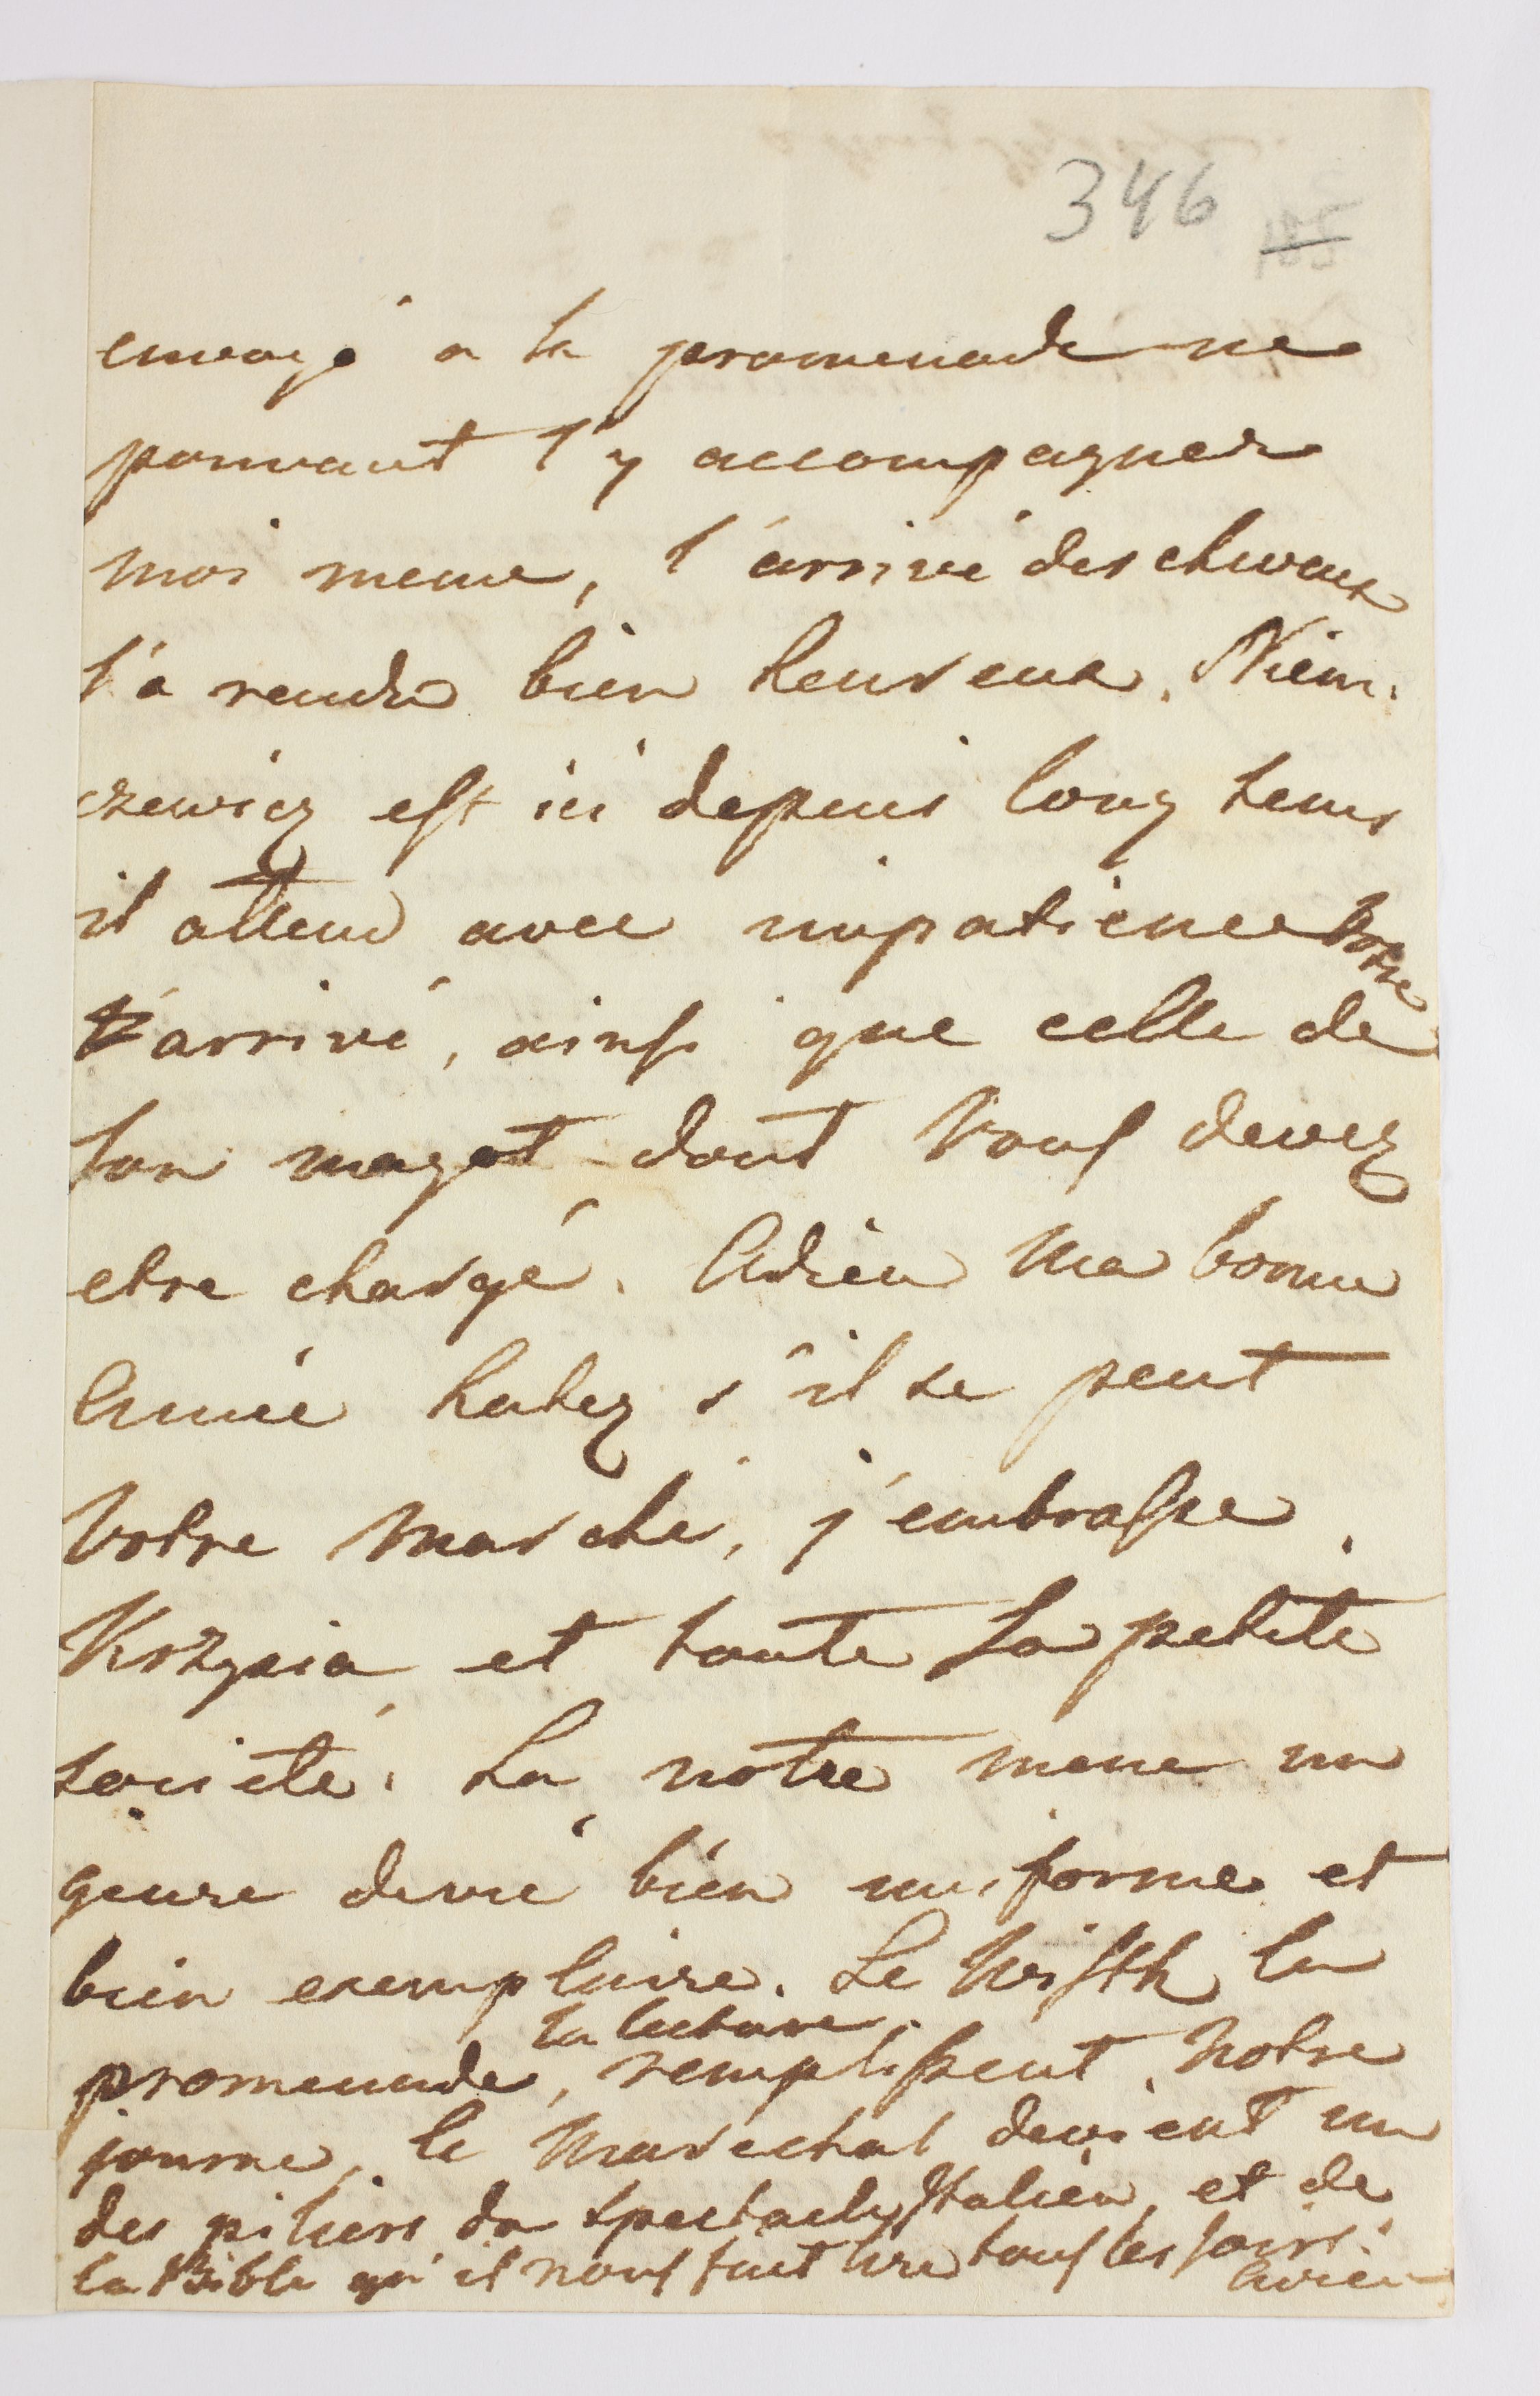 346
envoyé a la promenade ne
pouvant l'y accompagner
moi meme, l'arrivé des chevaux
l'a rendu bien heureux. Niem-
cewicz est ici depuis long tems
il attend avec impatience votre
arrivé, ainsi que celle de
son magot dont vous devez
etre chargé. Adieu Ma bonne
Amie hatez s'il se peut
Votre marche, j'embrasse
Krzysia et toute la petite
societé. La notre mene un
genre de vie bien uniforme et
bien exemplaire. Le Wisth la
promenade, la lecture remplissent notre
journe, le Marechal devient un
des piliers du spectacle Italien, et de
la Bible qu'il nous fait lire tous les soirs.